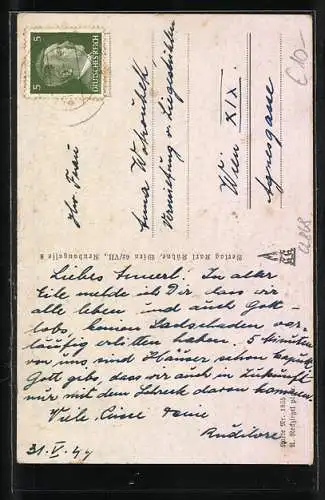 5
5
DEUTSCHES REICH
Hr. Frau
Anna
Vermietung v. Liegestühlen
Wien XIX.
Agnesgasse
€10-
Verlag Karl Kühne, Wien 62/VII., Neubaugasse 8
Liebes Annerl! In aller
Eile melde ich Dir, dass wir
alle leben und auch Gott-
lob, keinen Sachschaden vor-
läufig erlitten haben. 5 Minuten
von uns sind Häuser schon kaputt.
Gott gibs, dass wir auch in Zukunft
mir mit dem Schreck davon kommen.
Viele Küsse Deine
31. V. 44